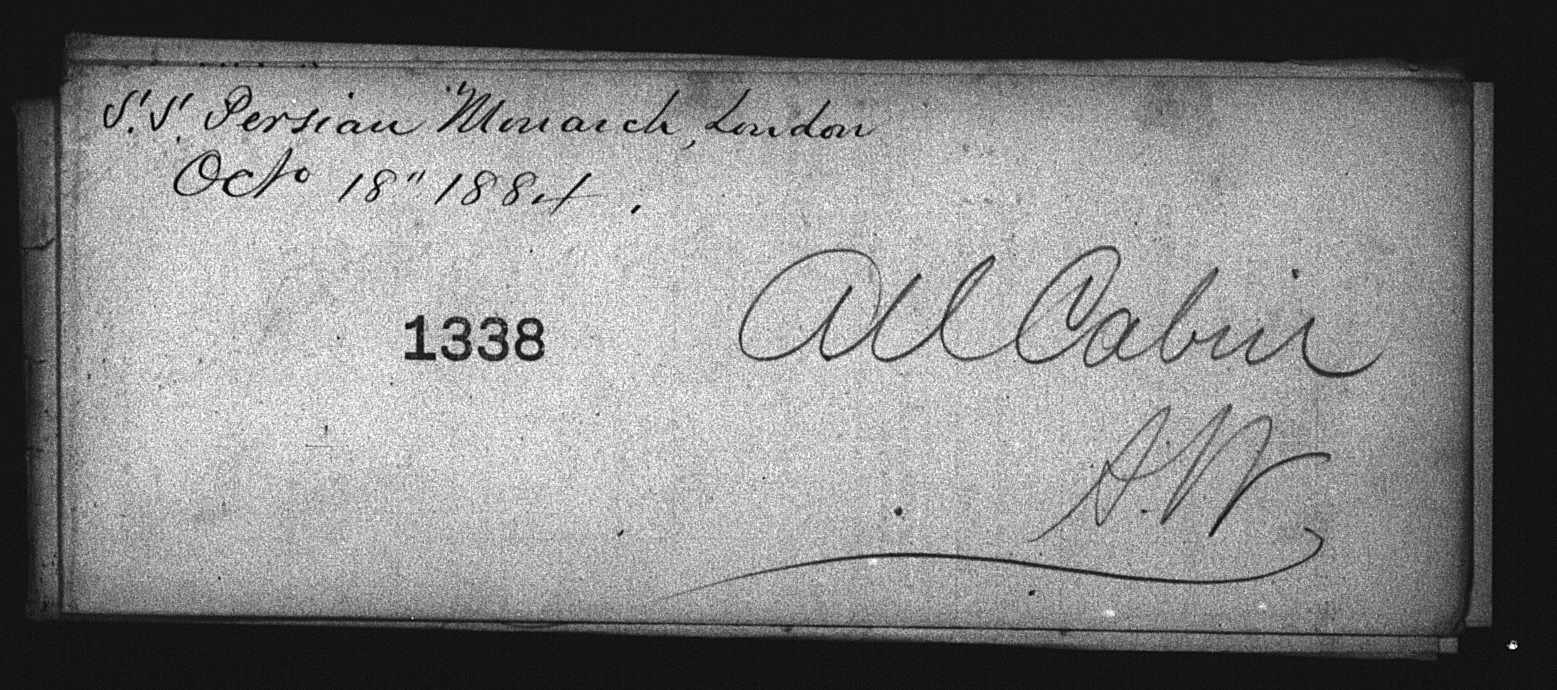 S.S. Persian Monarch, London
Octo 18" 1884.
1338
All Cabin
A.W.